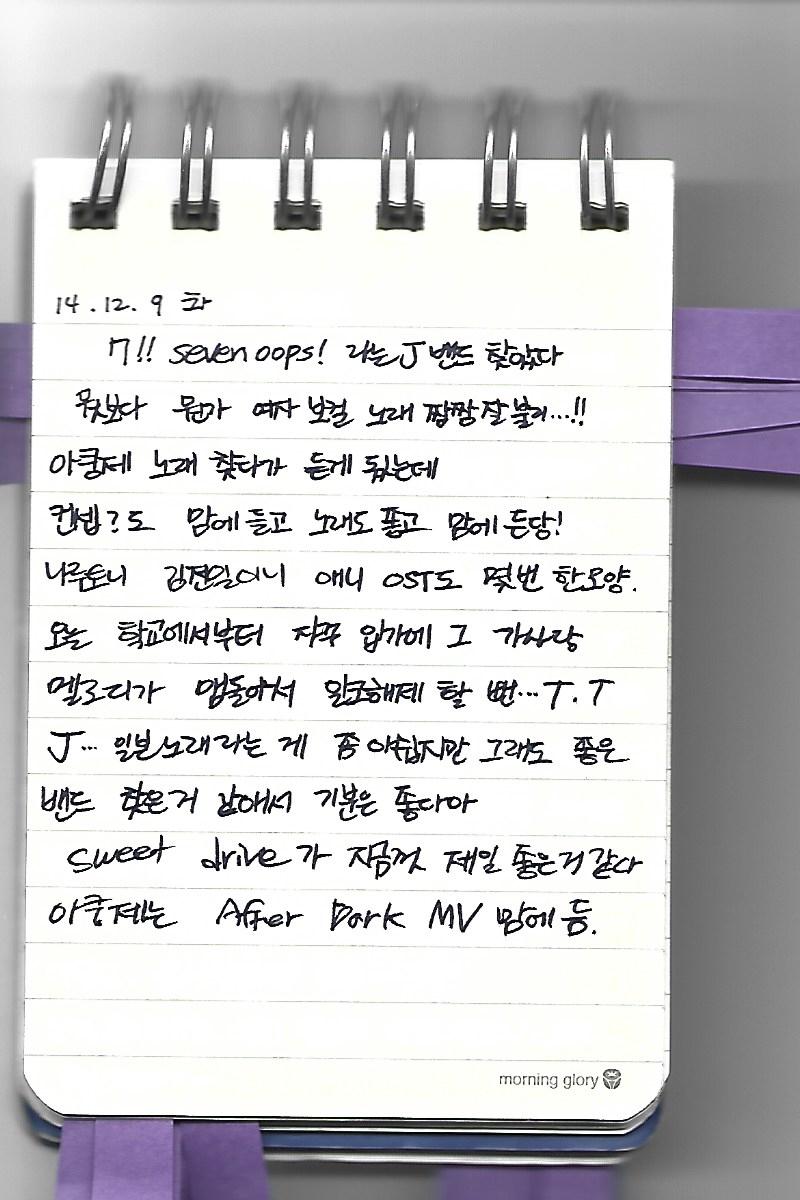 14.12.9 화
7!! seven oops! 라는 J밴드 찾았다
무엇보다 뭔가 여자 보컬 노래 짱짱 잘불러...!!
아쿵제 노래 찾다가 듣게 됐는데
컨셉?도 맘에 들고 노래도 좋고 맘에 든당!
나루토니 김전일이니 애니 OST도 몇번 한모양.
오늘 학교에서부터 자꾸 입가에 그 가사랑
멜로디가 맴돌아서 일코해제 할 뻔...T.T
J... 일본노래라는 게 좀 아쉽지만 그래도 좋은
밴드 찾은거 같애서 기분은 좋다아
sweet drive가 지금껏 제일 좋은거 같다
아쿵제는 After Dark MV 맘에 듬.
morning glory